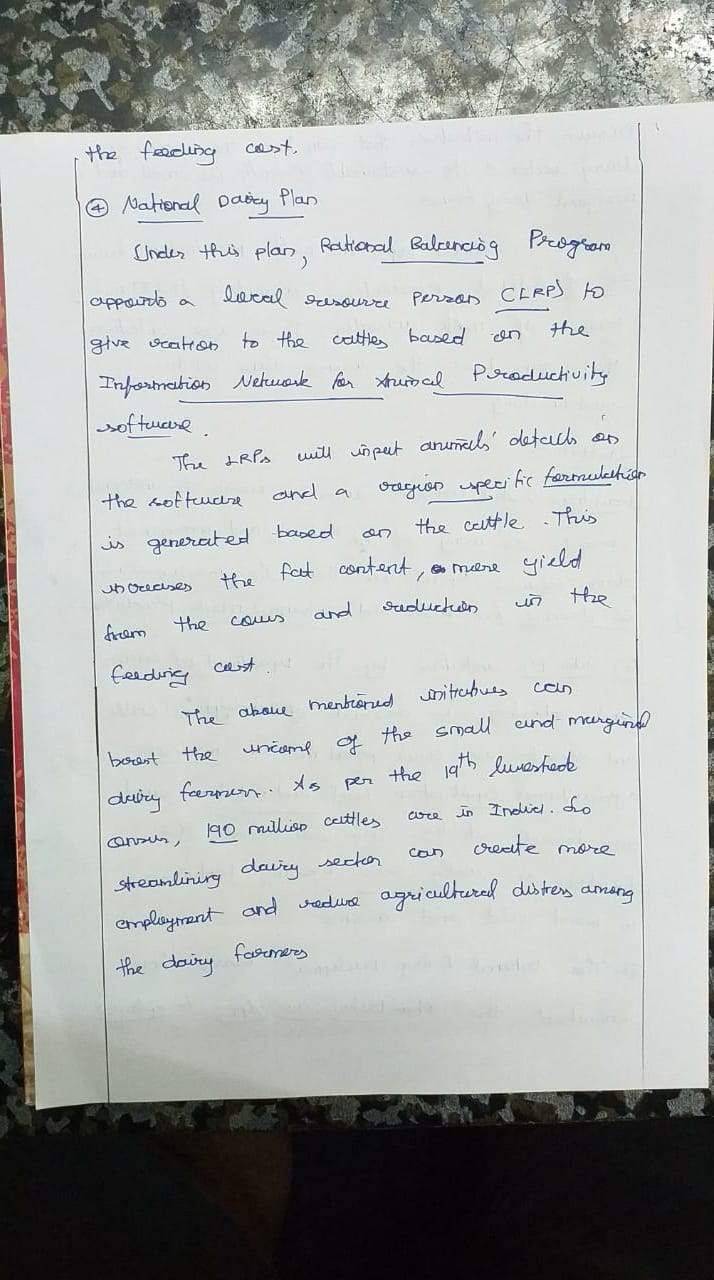 the feeding cost.
④ National Dairy Plan
Under this plan, Rational Balancing Program
appoints a local resource person (LRP) to
give ration to the cattles based on the
Information Network for Animal Productivity
software.
The LRPs will input animals' details on
the software and a region specific formulation
is generated based on the cattle. This
increases the fat content, more yield
from the cows and reduction in the
feeding cost.
The above mentioned initiatives can
boost the income of the small and marginal
dairy farmers. As per the 19th livestock
census, 190 million cattles are in India. So
streamlining dairy sector can create more
employment and reduce agricultural distress among
the dairy farmers